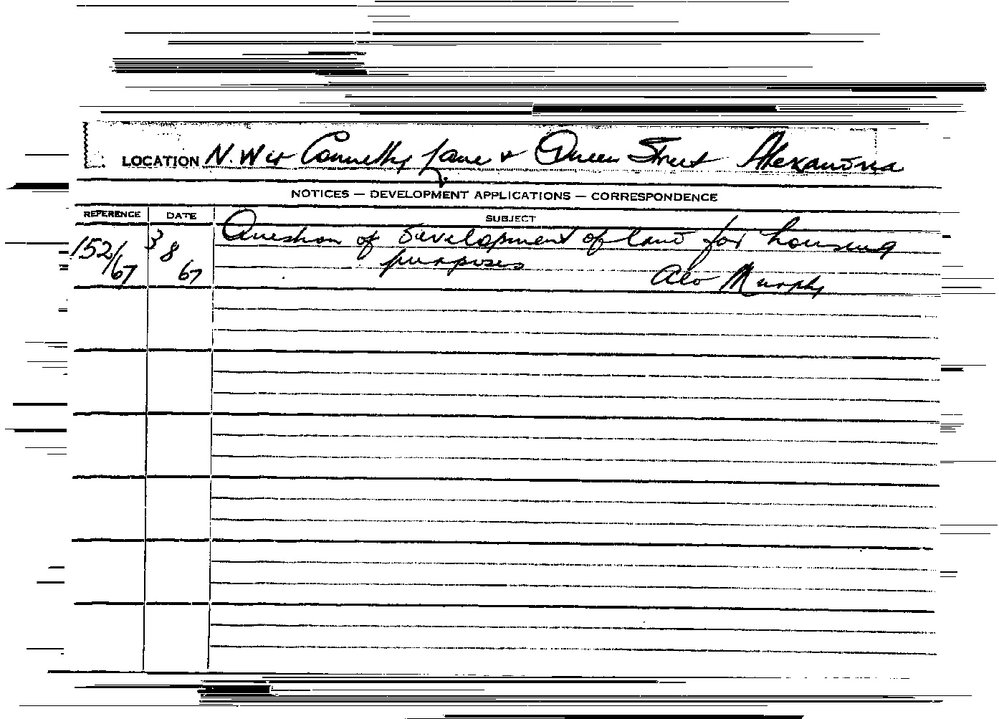 LOCATION N.W cr Connelly Lane & Queen Street Alexandria
NOTICES — DEVELOPMENT APPLICATIONS — CORRESPONDENCE
REFERENCE DATE SUBJECT
152/67 3 8 67 Question of development of land for housing
purposes Murphy